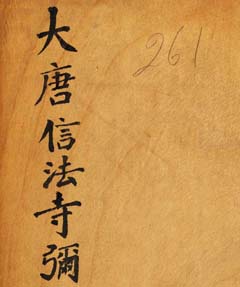 大唐信法寺彌
261